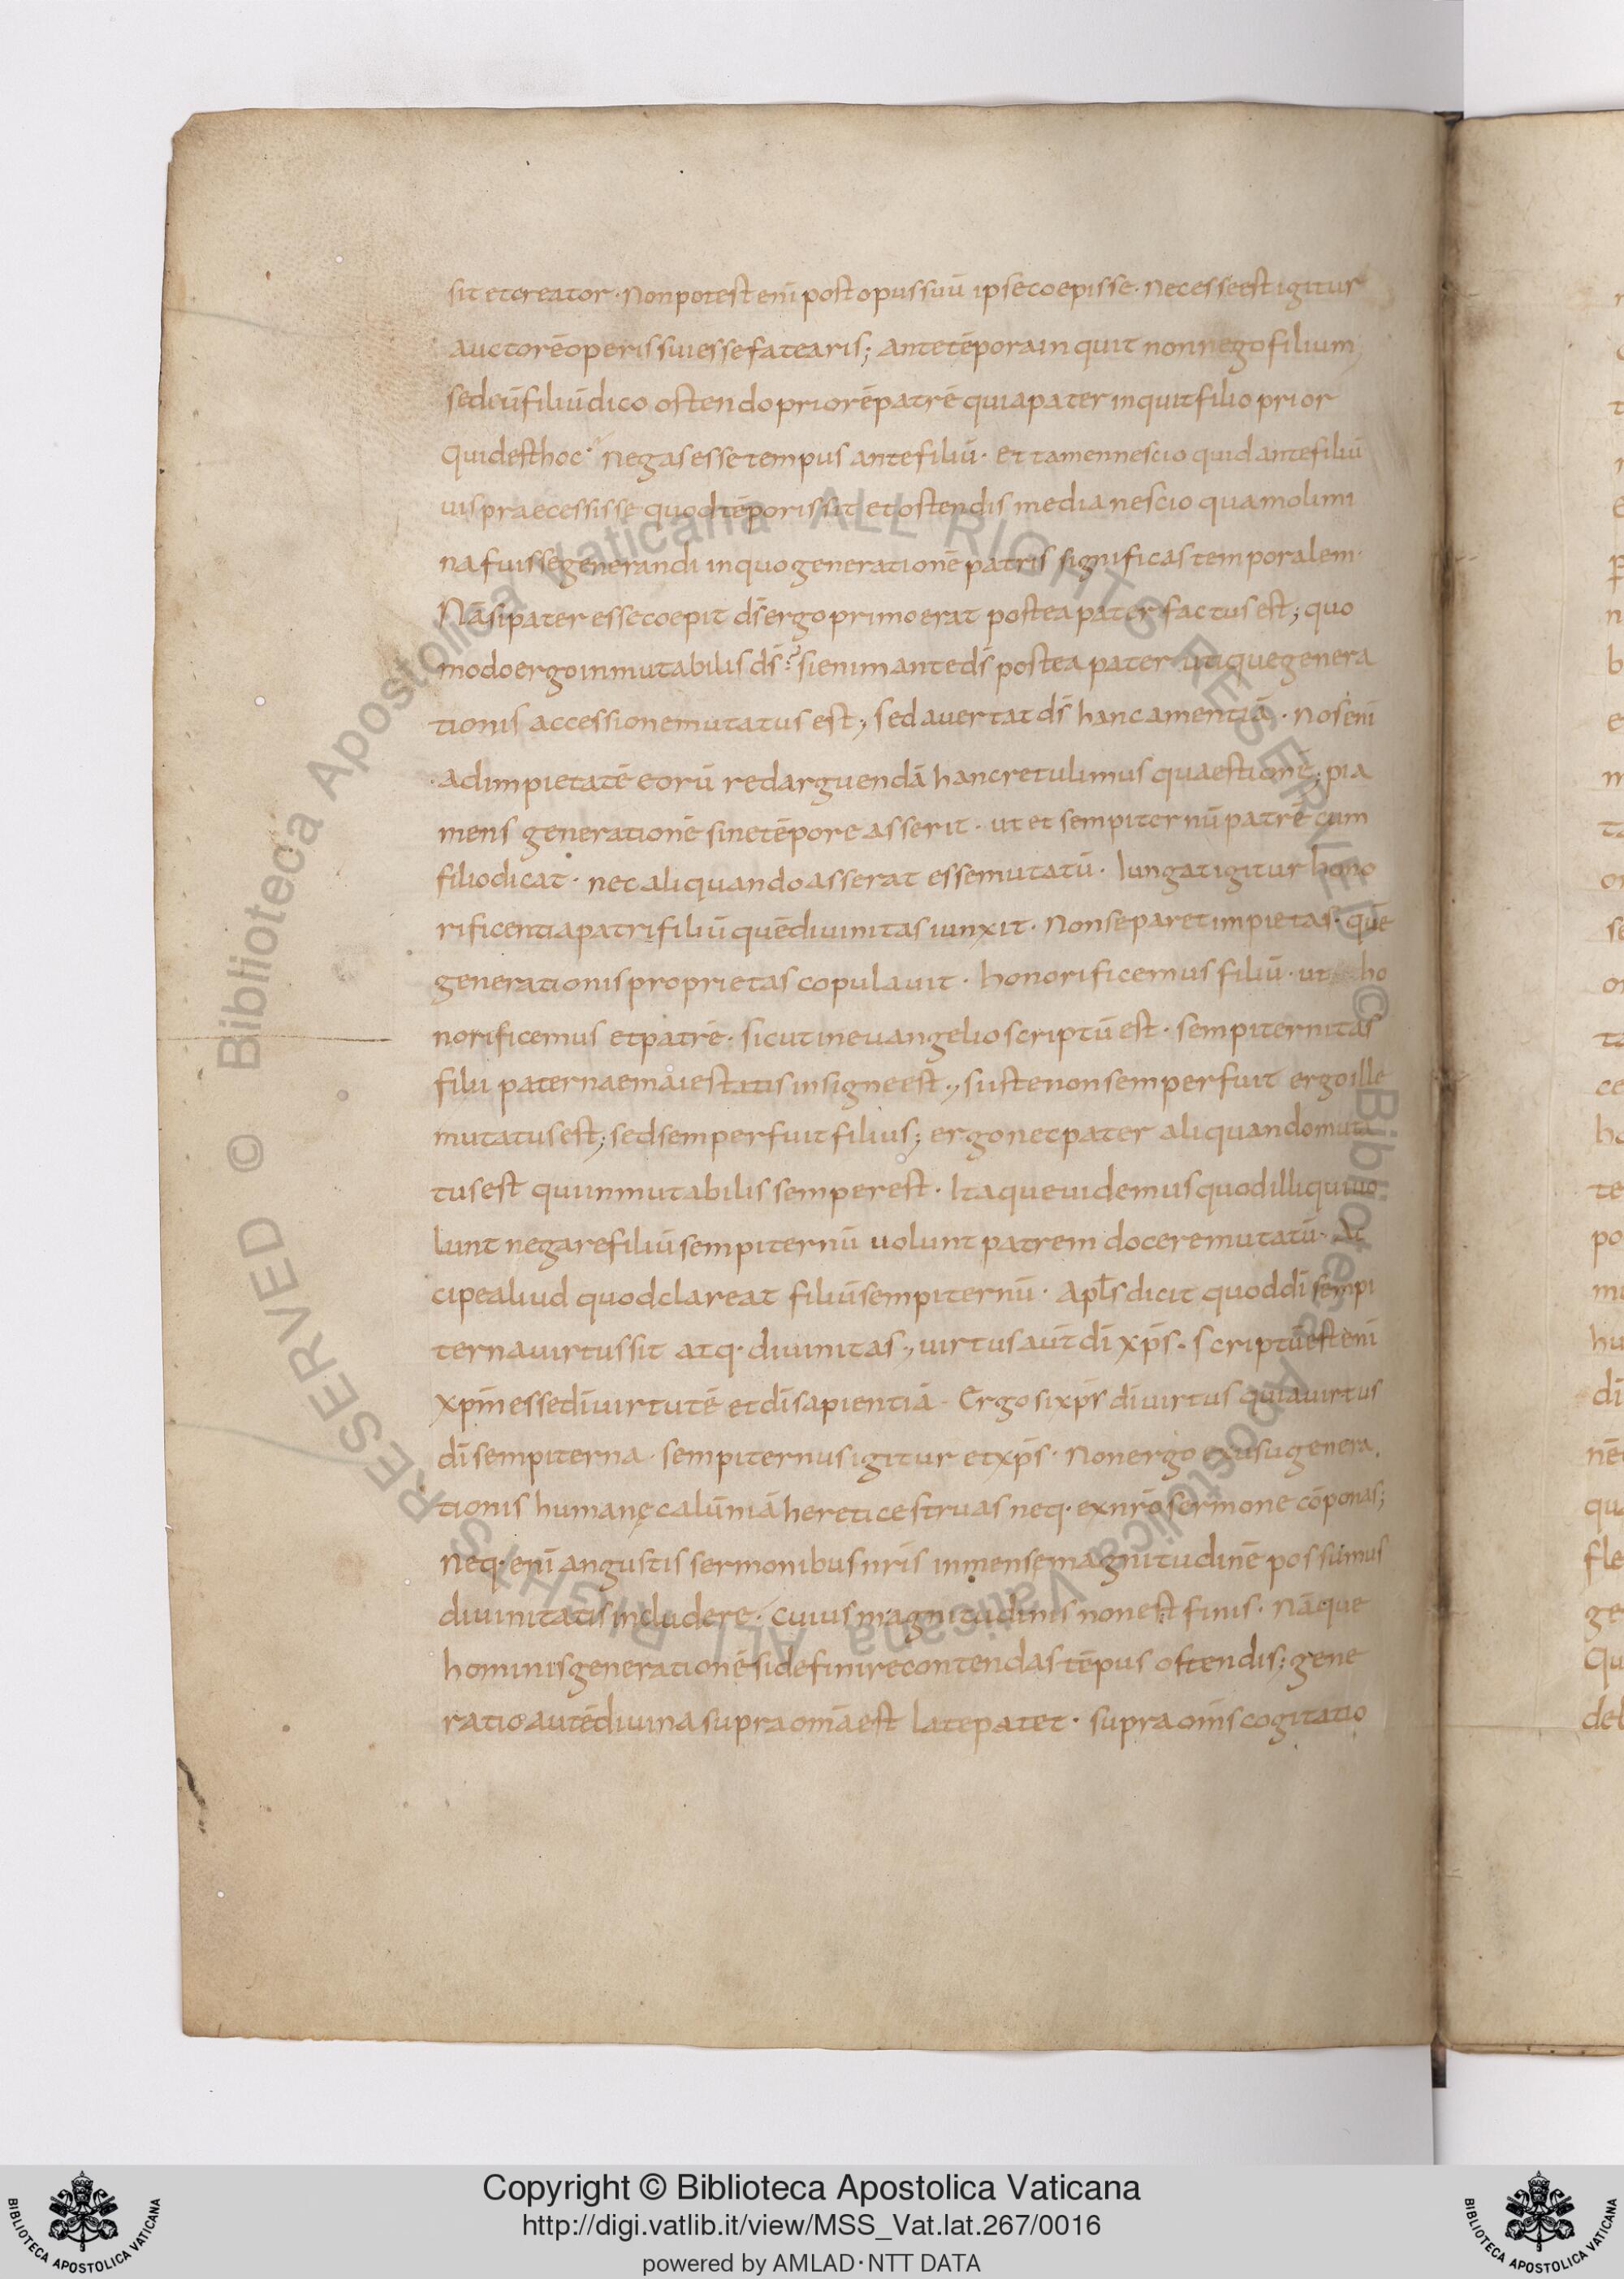 sit et creator · Non potest enī post opus suū ipse coepisse · Necesse est igitur
auctorē operis sui esse fatearis; Ante tēpora inquit non nego filium
sed cū filiū dico ostendo priorē patrē quia pater inquit filio prior
Quid est hoc · Negas esse tempus ante filiū · Et tamen nescio quid ante filiū
uis praecessisse quod tēporis sit et ostendis media nescio qua molimi
na fuisse generandi in quo generationē patris significas temporalem ·
Nā si pater esse coepit ds̄ ergo primo erat postea pater factus est; quo
modo ergo inmutabilis ds̄? si enim ante ds̄ postea pater utique genera
tionis accessione mutatus est; sed auertat ds̄ hanc amentiā · Nos enī
ad impietatē eorū redarguendā hanc retulimus quaestionē; pia
mens generationē sine tēpore asserit · ut et sempiternū patrē cum
filio dicat · nec aliquando asserat esse mutatū · Iungat igitur hono
rificentia patri filiū quē diuinitas iunxit · Non separet impietas · quē
generationis proprietas copulauit · honorificemus filiū · ut ho
norificemus et patrē · sicut in euangelio scriptū est · sempiternitas
filii paternae maiestatis insigne est; si iste non semper fuit ergo ille
mutatus est; sed semper fuit filius; ergo nec pater aliquando muta
tus est qui inmutabilis semper est · Itaque uidemus quod illi qui uo
lunt negare filiū sempiternū uolunt patrem docere mutatū · Ac
cipe aliud quod clareat filiū sempiternū · Apls̄ dicit quod dī sempi
terna uirtus sit atq· diuinitas; uirtus aūt dī xp̄s · scriptū est enī
xp̄m esse dī uirtutē et dī sapientiā · Ergo si xp̄s dī uirtus quia uirtus
dī sempiterna · sempiternus igitur et xp̄s · Non ergo ex usu genera
tionis humanę calūniā heretice struas neq· ex nr̄o sermone cōponas;
Neq· enī angustis sermonibus nr̄is inmense magnitudinē possumus
diuinitatis includere · Cuius magnitudinis non est finis · Nāque
hominis generationē si definire contendas tēpus ostendis; gene
ratio autē diuina supra om̄ia est late patet · supra om̄s cogitatio
Copyright © Biblioteca Apostolica Vaticana
http://digi.vatlib.it/view/MSS_Vat.lat.267/0016
powered by AMLAD · NTT DATA
BIBLIOTECA APOSTOLICA VATICANA
BIBLIOTECA APOSTOLICA VATICANA
© Biblioteca Apostolica Vaticana ALL RIGHTS RESERVED © Biblioteca Apostolica Vaticana ALL RIGHTS RESERVED